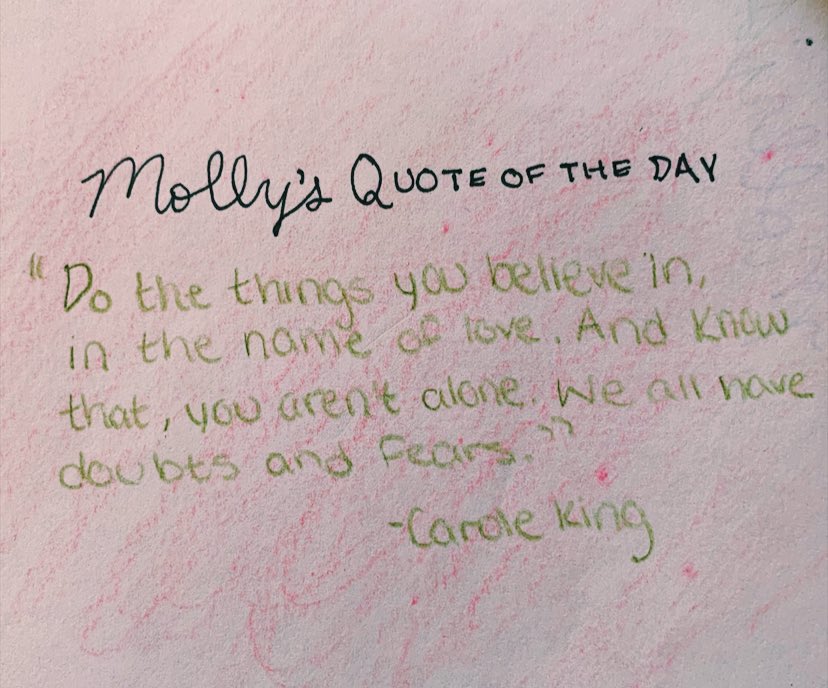 Molly's QUOTE OF THE DAY
"Do the things you believe in,
in the name of love. And Know
that, you aren't alone. We all have
doubts and Fears."
-Carole King